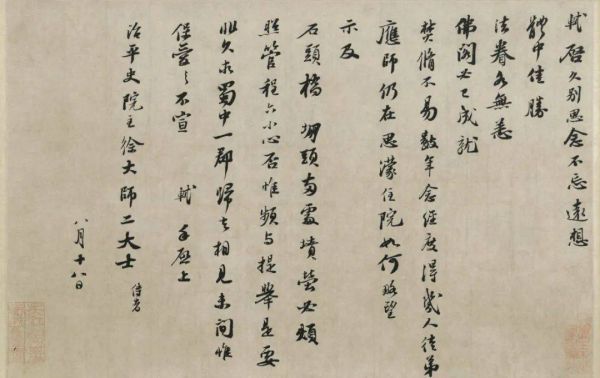 軾啓久別思念不忘遠想
體中佳勝
法眷各無恙
佛閣必已成就
焚脩不易數年念經度得幾人徒弟
應師仍在思濛住院如何略望
示及
石頭橋堋頭兩處墳塋必煩
照管程六小心否惟頻与提舉是要
非久求蜀中一郡歸去相見未間惟
保愛之不宣 軾 手啓上
治平史院主徐大師二大士 侍者
八月十八日